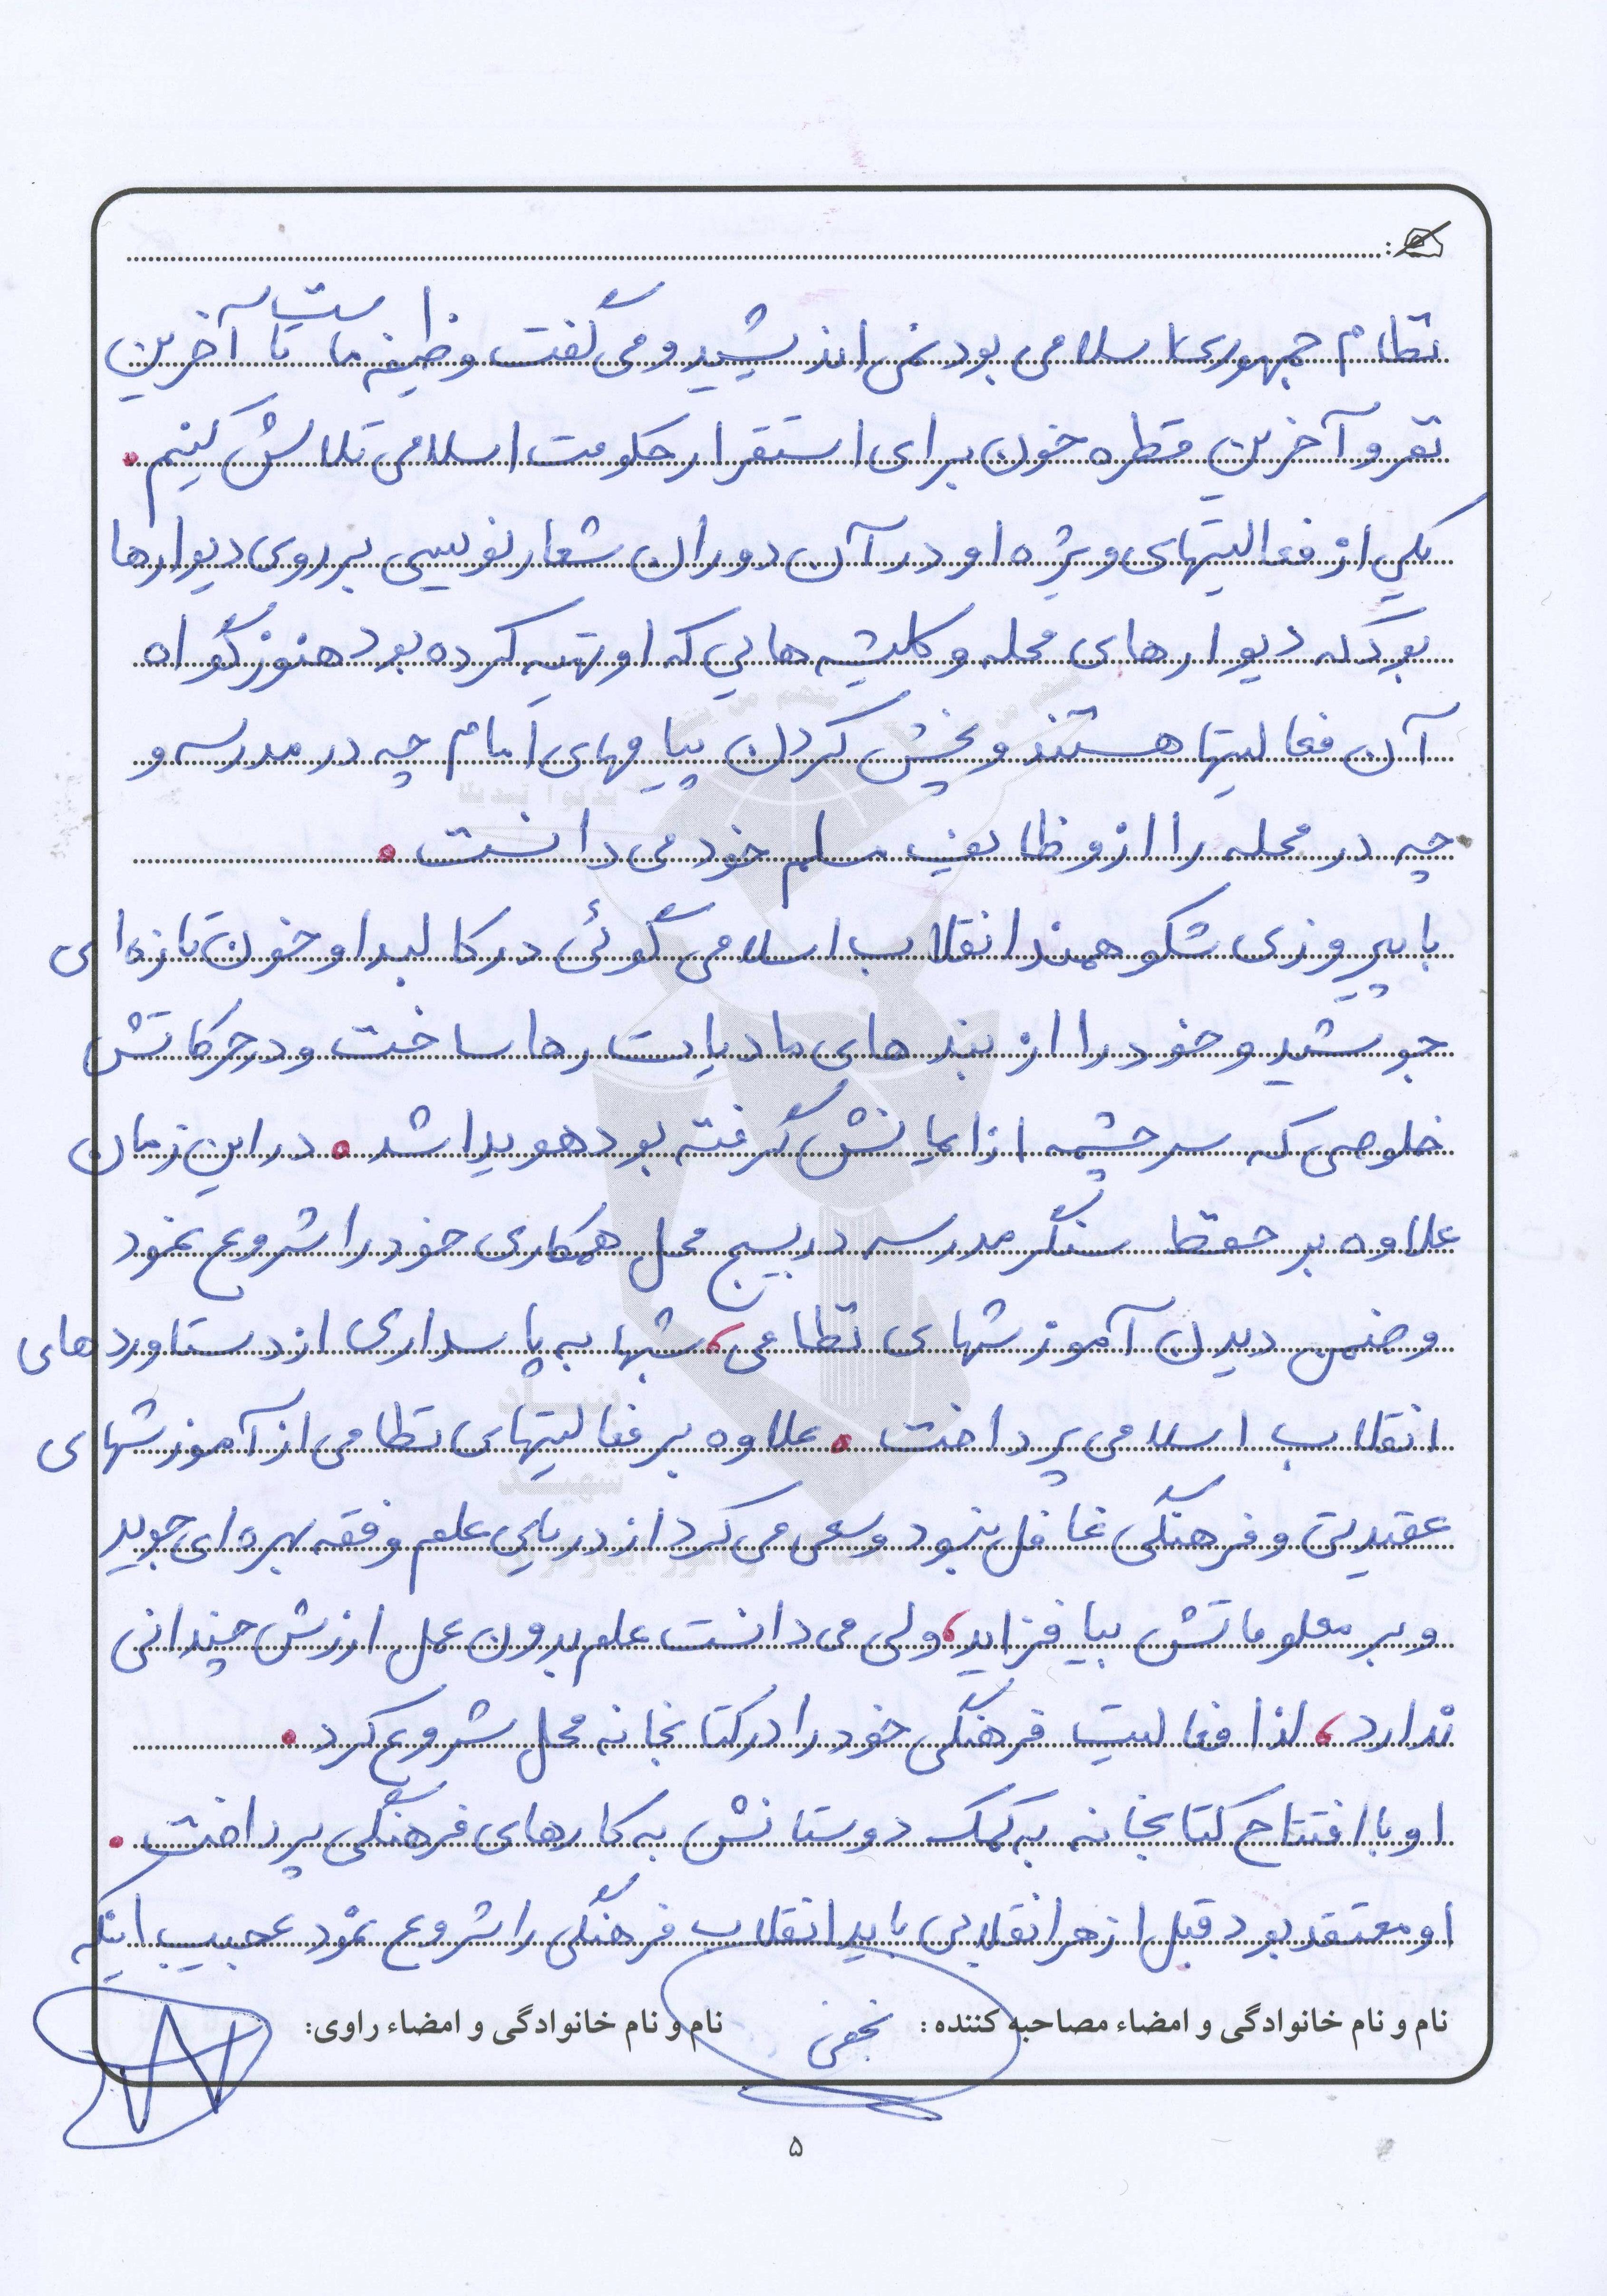 نظام جمهوری اسلامی بود نمی اندیشید و می گفت وظیفه ماست تا آخرین
نفر و آخرین قطره خون برای استقرار حکومت اسلامی تلاش کنیم.
یکی از فعالیتهای ویژه او در آن دوران شعار نویسی بر روی دیوارها
بود که دیوارهای محله و کلیشه هایی که او تهیه کرده بود هنوز گواه
آن فعالیتها هستند و پخش کردن پیامهای امام چه در مدرسه و
چه در محله را از وظایف مسلم خود می دانست.
با پیروزی شکوهمند انقلاب اسلامی گوئی در کالبد او خون تازه ای
جوشید و خود را از بندهای مادیات رها ساخت و در حرکاتش
خلوصی که سرچشمه از ایمانش گرفته بود هویدا شد. در این زمان
علاوه بر حفظ سنگر مدرسه در بسیج محل همکاری خود را شروع نمود
و ضمن دیدن آموزشهای نظامی، شبها به پاسداری از دستاوردهای
انقلاب اسلامی پرداخت. علاوه بر فعالیتهای نظامی از آموزشهای
عقیدتی و فرهنگی غافل نبود و سعی می کرد از دریای علم و فقه بهره ای جوید
و بر معلوماتش بیافزاید، ولی می دانست علم بدون عمل ارزش چندانی
ندارد، لذا فعالیت فرهنگی خود را در کتابخانه محل شروع کرد.
او با افتتاح کتابخانه به کمک دوستانش به کارهای فرهنگی پرداخت.
او معتقد بود قبل از هر انقلابی باید انقلاب فرهنگی را شروع نمود عجیب اینکه
نام و نام خانوادگی و امضاء مصاحبه کننده: نجفی نام و نام خانوادگی و امضاء راوی:
۵